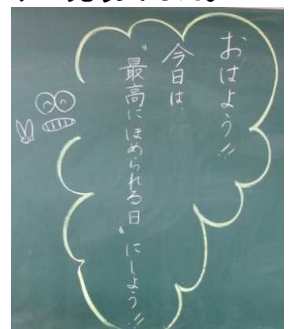 おはよう!!
今日は
〝最高にほめられる日〟にしよう!!